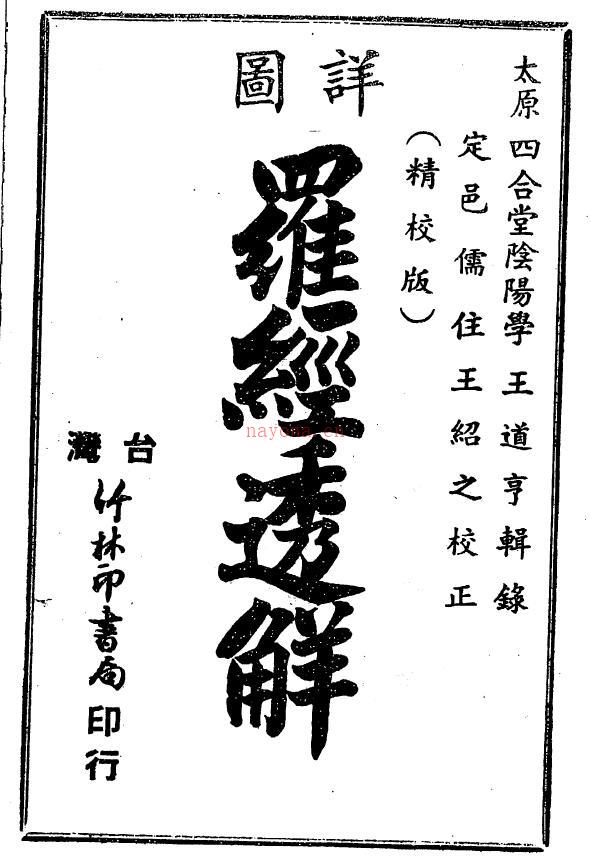 太原四合堂陰陽學王道亨輯錄
定邑儒住王紹之校正
(精校版)
詳圖
羅經透解
台灣
竹林印書局印行